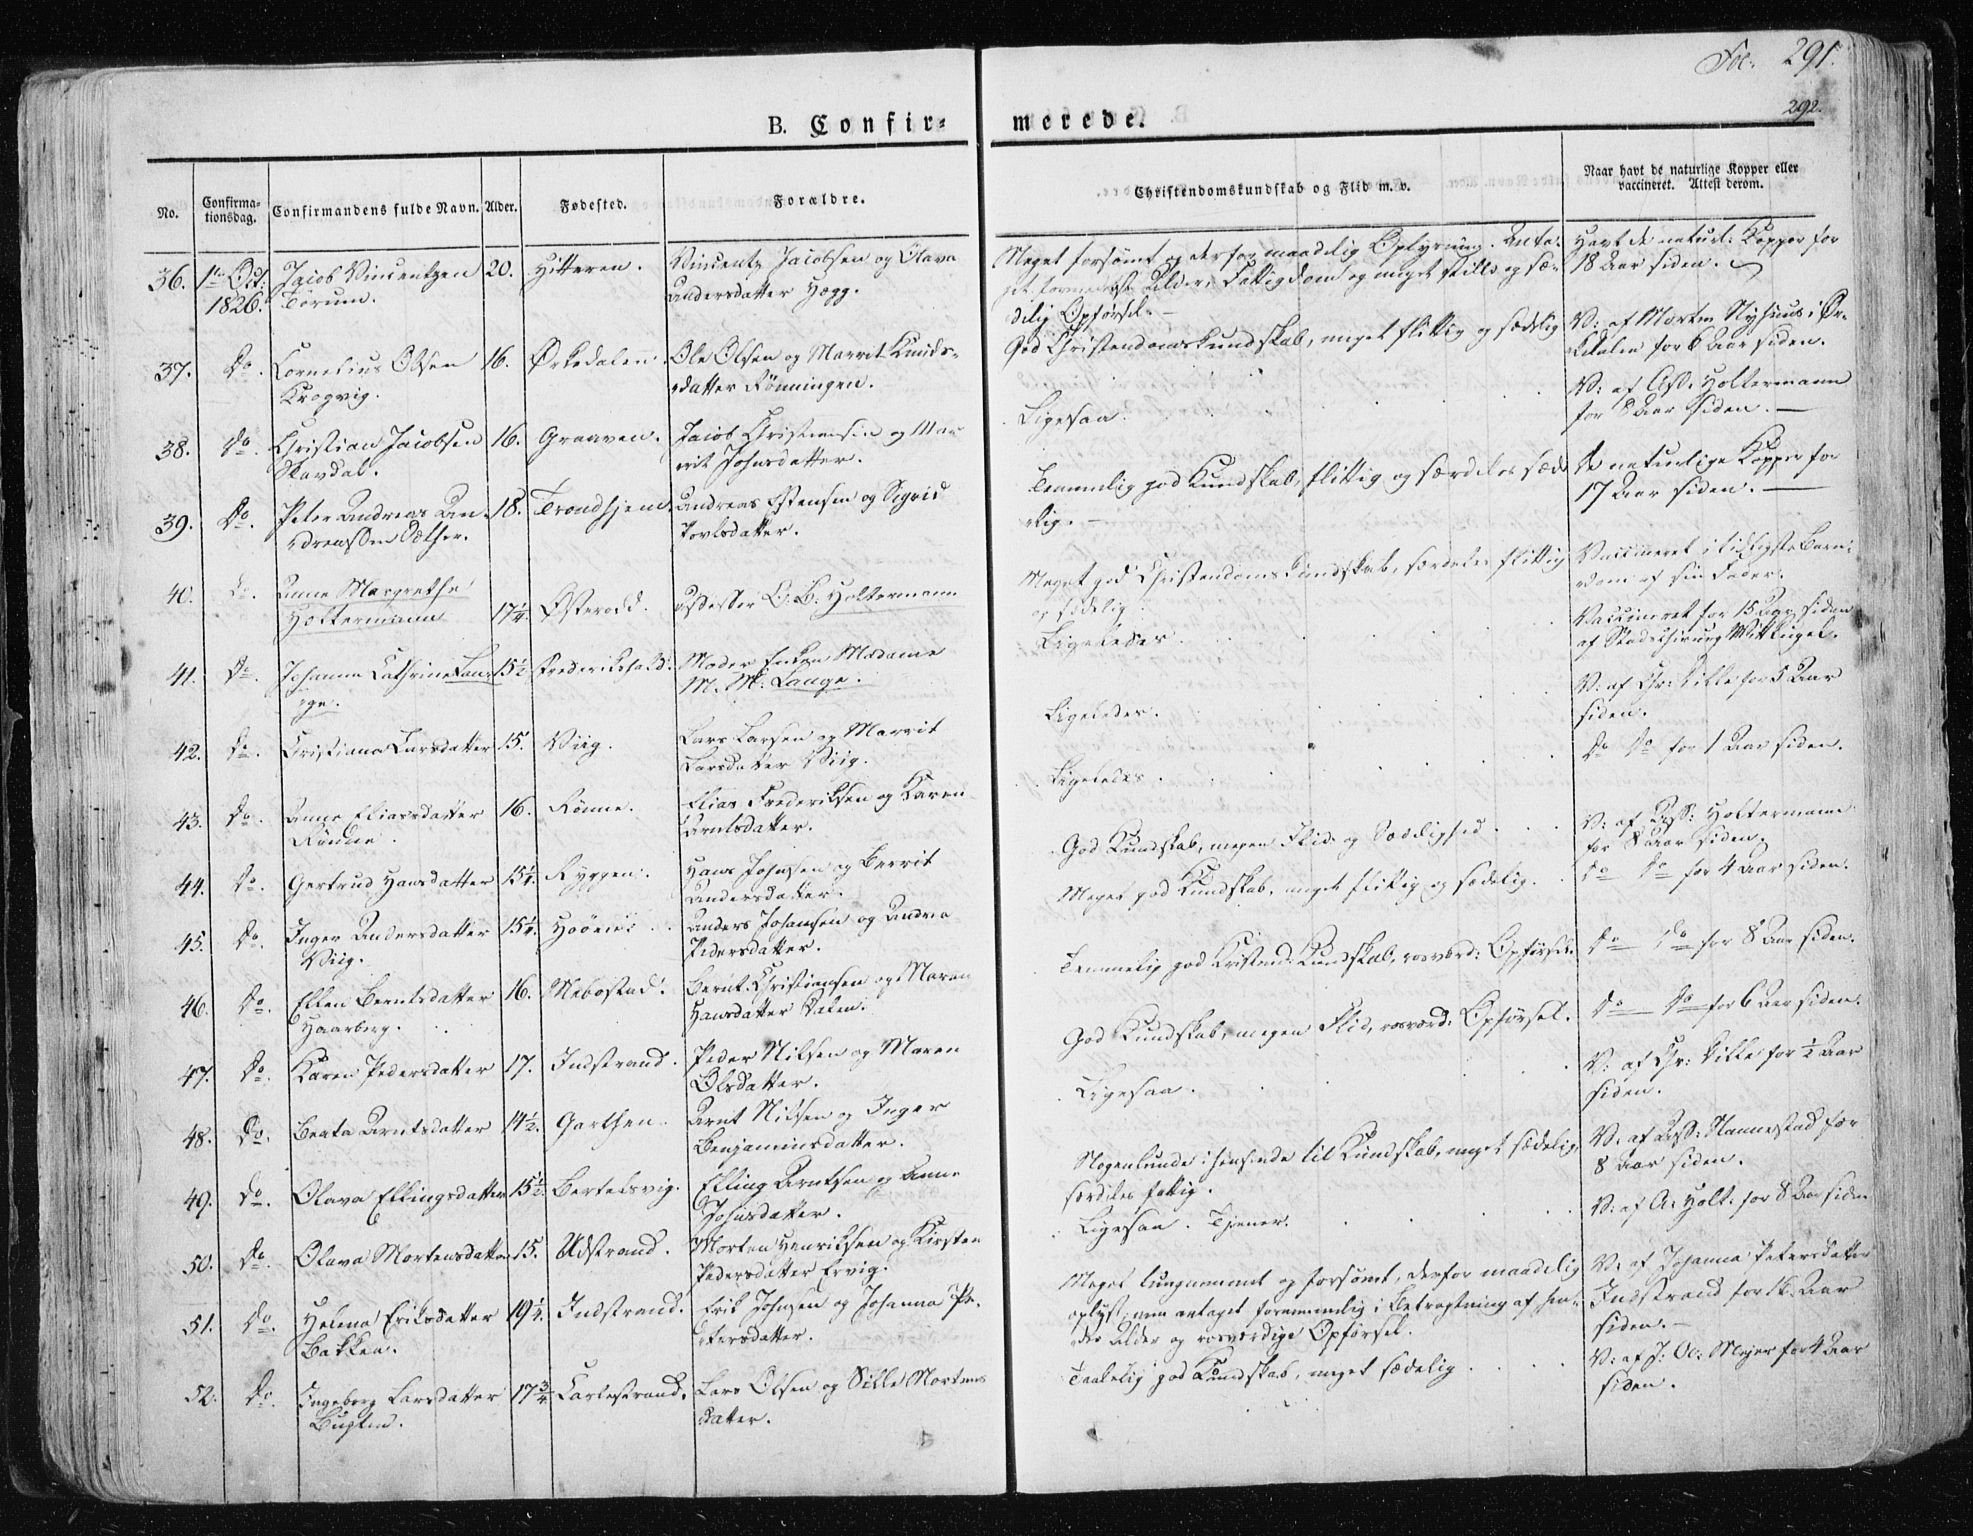 Fol. 291.
292.
B. Confir=
merede.
No.
Confirma-
tionsdag.
Confirmandens fulde Navn.
Alder.
Fødested.
Forældre.
Christendomskundskab og Flid m. v.
Naar havt de naturlige Kopper eller
vaccineret. Attest derom.
36. 1ste Oct: Jacob Vincentzen 20. Hitteren. Vincentz Jacobsen og Olava
1826. Andersdatter Hegg.
Meget forsømt og derfor maadelig Oplysning. Anta-
get formedelst Alder, Fattigdom og meget stille og sæ-
delig Opførsel.
Havt de naturl: Kopper for
18 Aar siden.
37. Do. Cornelius Olsen 16. Ørkedalen. Ole Olsen og Marrit Knuds-
Krogvig. datter Rønningen.
God Christendomskundskab, meget flittig og sædelig
V: af Morten Nyhuus i Ør-
kedalen for 6 Aar siden.
38. Do. Christian Jacobsen 16. Graaven. Jacob Christiansen og Mar-
Skavdal. rit Johnsdatter.
Ligesaa.
V: af Ass. Holtermann
for 8 Aar siden.
39. Do. Peter Andreas An- 18. Trondhjem. Andreas Estensen og Sigrid
dreassen Sæther. Povlsdatter.
Temmelig god Kundskab, flittig og særdeles sæde-
lig.
De naturlige Kopper for
17 Aar siden.
40. Do. Anne Margrethe
Holtermann 17 1/4. Østeraad. Assessor O. B. Holtermann
Meget god Christendomskundskab, særdeles flittig
og sædelig.
Vaccineret i tidligste Barn-
dom af sin Fader.
41. Do. Johanna Cathrine Lan- 15 1/2 Frederikshald. Moder Enken Madame
ge. M. M. Lange.
Ligeledes.
Vaccineret for 15 Aar siden
af Stadschirurg Wittkugel.
42. Do. Cristiana Larsdatter 15. Viig. Lars Larsen og Marrit
Larsdatter Viig.
Ligeledes.
V: af Chr: Lille for 5 Aar
siden.
43. Do. Anne Eliasdatter 16. Rønne. Elias Frederiksen og Karen
Rønne. Arntsdatter.
Ligeledes.
Do Do for 1 Aar siden.
44. Do. Gertrud Hansdatter 15 1/4. Ryggen. Hans Johnsen og Berrit
Andersdatter.
God Kundskab, megen Flid og Sædelighed.
V: af Ass: Holtermann
for 8 Aar siden.
45. Do. Inger Andersdatter 15 1/4. Anders Johansen og Andrea
Viig. Pedersdatter.
Meget god Kundskab, meget flittig og sædelig.
Do Do for 4 Aar siden.
46. Do. Ellen Berntsdatter 16. Nebostad. Bernt Christiansen og Maren
Haarberg. Hansdatter
Temmelig god Kristend: Kundskab, rosværd: Opførsel.
Do Do for 8 Aar siden.
47. Do. Karen Pedersdatter 17. Indstrand. Peder Nilsen og Maren
Olsdatter.
God Kundskab, megen Flid, rosværd: Opførsel.
Do Do for 6 Aar siden.
48. Do. Beata Arntsdatter 14 1/2. Garthen. Arnt Nilsen og Inger
Benjaminsdatter.
Ligesaa.
V: af Chr: Lille for 1/2 Aar
siden.
49. Do. Olava Ellingsdatter 15 1/2. Bertelsvig. Elling Arntsen og Anne
Johnsdatter.
Nogenlunde i Henseende til Kundskab, meget sædelig,
særdeles fattig.
V: af Ass: Hannestad for
8 Aar siden.
50. Do. Olava Mortensdatter 15. Udstrand. Morten Henriksen og Kirsten
Pedersdatter Ervig.
Ligesaa. Tjener.
V: af A: Holt: for 8 Aar siden
51. Do. Helena Eriksdatter 19 1/4. Indstrand. Erik Johnsen og Johanna Pe-
Bakken. tersdatter.
Meget tungnemmet og forsømt, derfor maadelig
oplyst, men antaget fornemmelig i Betragtning af hen-
des Alder og rosværdige Opførsel.
V: af Johanna Petersdatter
Indstrand for 16 Aar
siden.
52. Do. Ingeborg Larsdatter 17 3/4 Carlestrand. Lars Olsen og Sille Mortens
Bugten. datter.
Taalelig god Kundskab, meget sædelig
V: af J: Ol: Mejer for 4 Aar
siden.